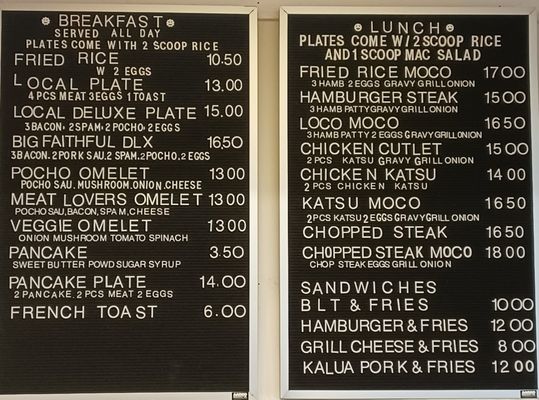 BREAKFAST
SERVED ALL DAY
PLATES COME WITH 2 SCOOP RICE
FRIED RICE 10.50
W 2 EGGS
LOCAL PLATE 13.00
4 PCS MEAT 3 EGGS 1 TOAST
LOCAL DELUXE PLATE 15.00
3 BACON, 2 SPAM, 2 POCHO, 2 EGGS
BIG FAITHFUL DLX 16,50
3 BACON, 2 PORK SAU, 2 SPAM, 2 POCHO, 2 EGGS
POCHO OMELET 13 00
POCHO SAU, MUSHROOM, ONION, CHEESE
MEAT LOVERS OMELET 13 00
POCHO SAU, BACON, SPAM, CHEESE
VEGGIE OMELET 13 00
ONION MUSHROOM TOMATO SPINACH
PANCAKE 3.50
SWEET BUTTER POWD SUGAR SYRUP
PANCAKE PLATE 14.00
2 PANCAKE, 2 PCS MEAT 2 EGGS
FRENCH TOAST 6.00
LUNCH
PLATES COME W/ 2 SCOOP RICE
AND 1 SCOOP MAC SALAD
FRIED RICE MOCO 17 00
3 HAMB 2 EGGS GRAVY GRILL ONION
HAMBURGER STEAK 15 00
3 HAMB PATTY GRAVY GRILL ONION
LOCO MOCO 16 50
3 HAMB PATTY 2 EGGS GRAVY GRILL ONION
CHICKEN CUTLET 15 00
2 PCS KATSU GRAVY GRILL ONION
CHICKEN KATSU 14 00
2 PCS CHICKEN KATSU
KATSU MOCO 16 50
2 PCS KATSU 2 EGGS GRAVY GRILL ONION
CHOPPED STEAK 16 50
CHOPPED STEAK MOCO 18 00
CHOP STEAK EGGS GRILL ONION
SANDWICHES
BLT & FRIES 10 00
HAMBURGER & FRIES 12 00
GRILL CHEESE & FRIES 8 00
KALUA PORK & FRIES 12 00